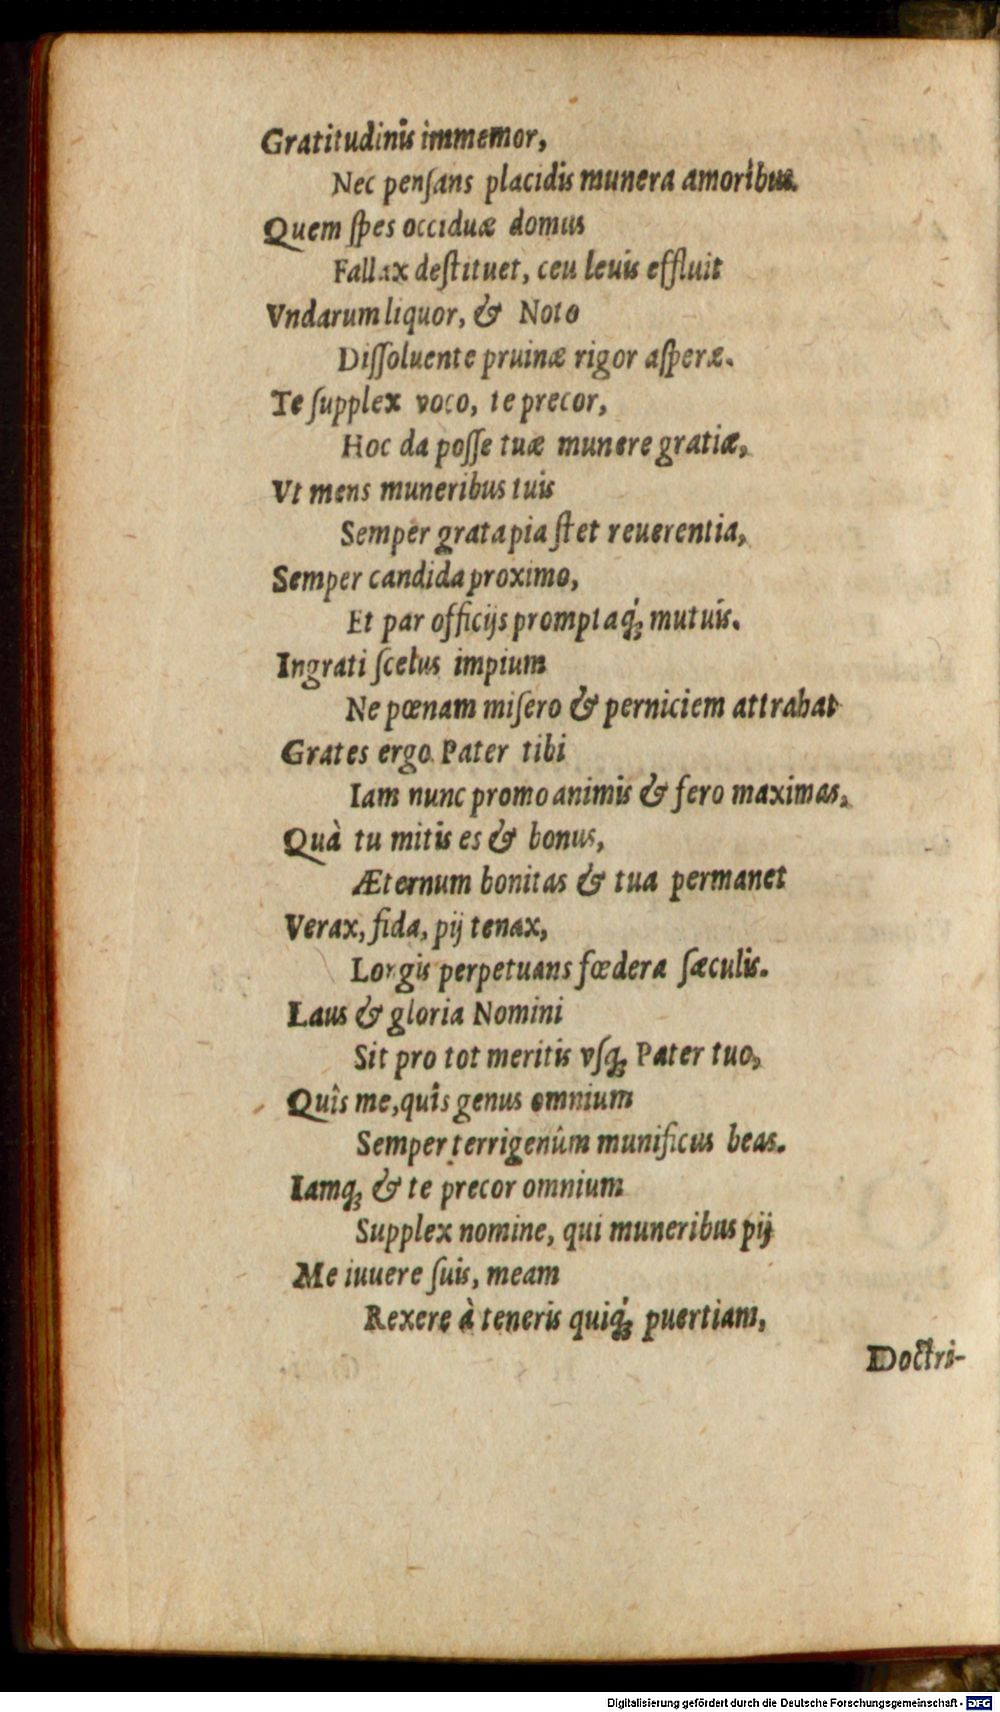 Gratitudinis immemor,
Nec penſans placidis munera amoribus.
Quem ſpes occiduæ domus
Fallax deſtituet, ceu leuis effluit
Vndarum liquor, & Noto
Diſſoluente pruinæ rigor aſperæ.
Te ſupplex voco, te precor,
Hoc da poſſe tuæ munere gratiæ,
Vt mens muneribus tuis
Semper grata pia ſtet reuerentia,
Semper candida proximo,
Et par officijs promptaq́; mutuis.
Ingrati ſcelus impium
Ne pœnam miſero & perniciem attrahat
Grates ergo Pater tibi
Iam nunc promo animis & fero maximas,
Quà tu mitis es & bonus,
Æternum bonitas & tua permanet
Verax, fida, pij tenax,
Lorgis perpetuans fœdera ſæculis.
Laus & gloria Nomini
Sit pro tot meritis vſq; Pater tuo,
Quîs me, quîs genus omnium
Semper terrigenûm munificus beas.
Iamq; & te precor omnium
Supplex nomine, qui muneribus pij
Me iuuere ſuis, meam
Rexere à teneris quiq́; puertiam,
Doctri-
Digitalisierung gefördert durch die Deutsche Forschungsgemeinschaft - DFG